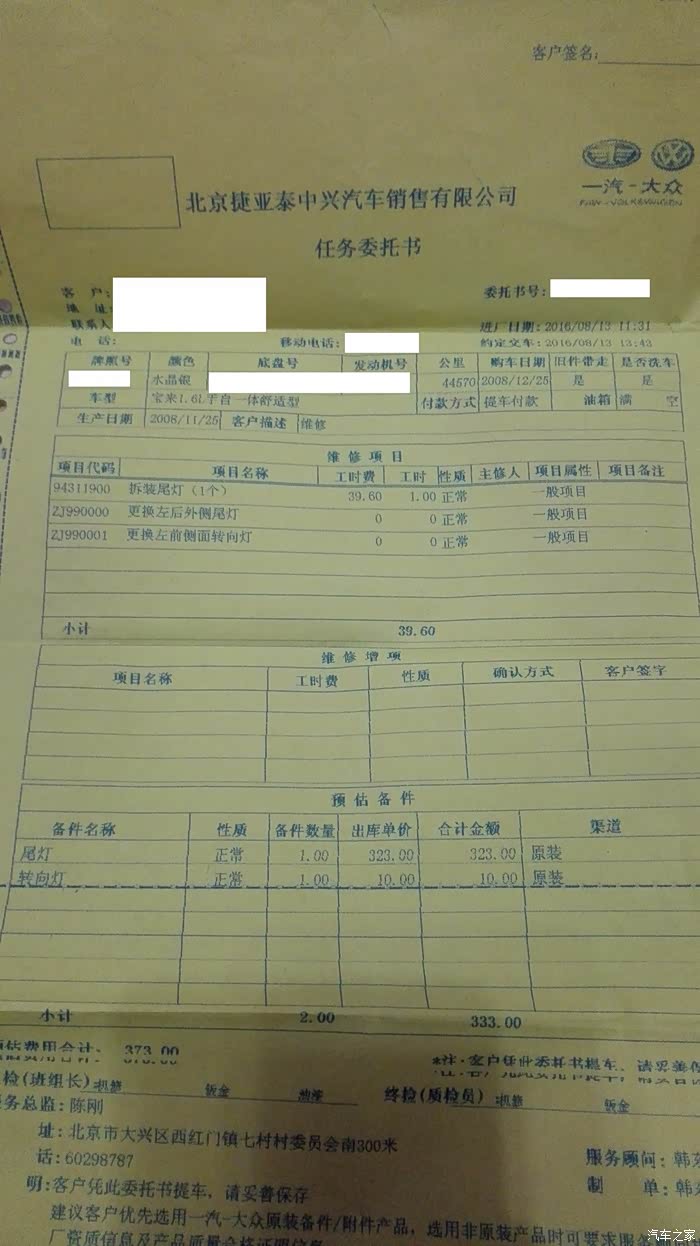 客户签名:
一汽-大众
FAW-VOLKSWAGEN
北京捷亚泰中兴汽车销售有限公司
任务委托书
客 户:
委托书号:
地 址:
联系人
进厂日期: 2016/08/13 11:31
电 话: 移动电话: 约定交车: 2016/08/13 13:43
牌照号 颜色 底盘号 发动机号 公里 购车日期 旧件带走 是否洗车
水晶银 44570 2008/12/25 是 是
车型 宝来1.6L手自一体舒适型 付款方式 提车付款 油箱 满 空
生产日期 2008/11/25 客户描述 维修
维修项目
项目代码 项目名称 工时费 工时 性质 主修人 项目属性 项目备注
94311900 拆装尾灯(1个) 39.60 1.00 正常 一般项目
ZJ990000 更换左后外侧尾灯 0 0 正常 一般项目
ZJ990001 更换左前侧面转向灯 0 0 正常 一般项目
小计 39.60
维修增项
项目名称 工时费 性质 确认方式 客户签字
预估备件
备件名称 性质 备件数量 出库单价 合计金额 渠道
尾灯 正常 1.00 323.00 323.00 原装
转向灯 正常 1.00 10.00 10.00 原装
小计 2.00 333.00
估费用合计: 373.00
*注:客户凭此委托书提车,请妥善保
检(班组长) 机修 钣金 油漆 终检(质检员) 机修 钣金
务总监: 陈刚
址: 北京市大兴区西红门镇七村村委员会南300米
话: 60298787 服务顾问: 韩
明: 客户凭此委托书提车, 请妥善保存 制 单: 韩
建议客户优先选用一汽-大众原装备件/附件产品, 选用非原装产品时可要求服务
厂资质信息及产品质量合格证明信息
汽车之家